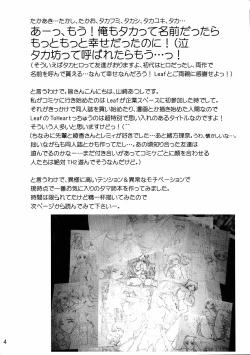 たかあき…たかし、たかお、タカフミ、タカシ、タカユキ、タカ…
あーっ、もう！俺もタカって名前だったら
もっともっと幸せだったのに！（泣
タカ坊って呼ばれたらもう…っ！
（そういえばタカヒロってお友達がおりますよ。初代はヒロだったし、両作で
名前を呼んで貰える…なんて幸せなんだろう！Leafとご両親に感謝せよっ！）
と言うわけで、皆さんこんにちは、山崎あつしです。
私がコミケに行き始めたのは Leafが企業スペースに初参加した時でして。
それがきっかけで同人誌を買い始めたり、書面とか描き始めた人間なので
LeafのToHeartっちゅうのは超特別で思い入れのあるタイトルなのですよ！
そういう人多いと思いますけどっ！
（ちなみに先輩と綾香さんとレミィが好きでしたさ…あと緒方理奈。うわ、懐かしいなー。
拙いながらも同人誌とか作ってたし…。あの頃知り合った友達は
遊んでるのかなー……まだ付き合いがあってコミケごとに顔を合わせる
人たちは絶対 TH2 遊んでそうなんだけど。）
と言うわけで、異様に高いテンション＆異常なモチベーションで
現時点で一番の気に入りのタマ姉本を作ってみました。
時間は限られてたけど精一杯描いてみたので
次ページから読んでみて下さいー。
4